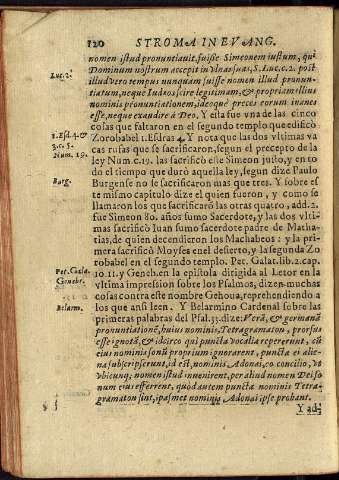 120 STROMA IN EVANG.
nomen istud pronuntiauit, fuisse Simeonem iustum, qui
Dominum nostrum accepit in vlnas suas, S. Luc. c. 2. post
illud vero tempus nunquam fuisse nomen illud pronun-
tiatum, neque Iudæos scire legitimam, & propriam illius
nominis pronuntiationem, ideoque preces eorum inanes
esse, neque exaudire à Deo. Y esta fue vna de las cinco
cosas que faltaron en el segundo templo que edificò
Zorobabel 1. Esdras 4. Y nota que las dos vltimas va
cas rufas que se sacrificaron, segun el precepto de la
ley Num. c. 19. las sacrificò este Simeon justo, y en to
do el tiempo que durò aquella ley, segun dize Paulo
Burgense no se sacrificaron mas que tres. Y sobre es
te mismo capitulo dize el quien fueron, y como se
llamaron los que sacrificarõ las otras quatro, add. 2.
fue Simeon 80. años sumo Sacerdote, y las dos vlti-
mas sacrificò Iuan sumo sacerdote padre de Matha-
tias, de quien decendieron los Machabeos: y la pri-
mera sacrificò Moysen enel desierto, y la segunda Zo
robabel en el segundo templo. Pet. Galat. lib. 2. cap.
10. 11. y Geneb. en la epistola dirigida al Letor en la
vltima impression sobre los Psalmos, dizen muchas
cosas contra este nombre Gehoua, reprehendiendo a
los que ansi leen. Y Belarmino Cardenal sobre las
primeras palabras del Psal. 33. dize: Verã, & germanã
pronuntiationẽ, huius nominis, Tetragramaton, prorsus
esse ignotã, & idcirco qui punctа vocalia repererunt, cũ
eius nominis sonũ proprium ignorarent, puncta ex alie-
na subscripserunt, id est, nominis, Adonai, eo concilio, vt
vbicunq; nomen istud inuenirent, per aliud nomen Dei so
num eius efferrent, quòd autem puncta nominis Tetra-
gramaton sint, ipsamet nominis, Adonai ipse probant.
Y ad-
Luc. 2.
1. Esd. 4. &
3. c. 5.
Num. 19.
Burg.
Pet. Gala.
Genebr.
Belarm.